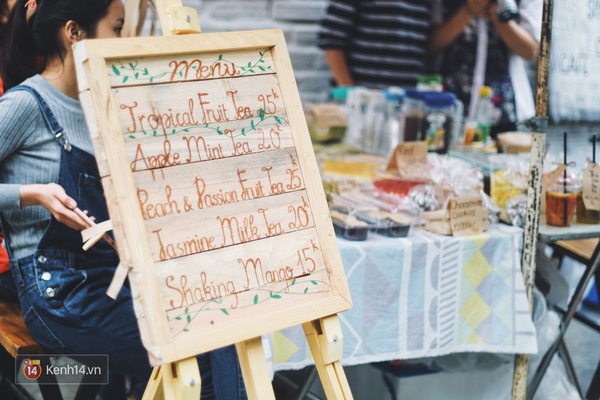 Menu
Tropical Fruit Tea 25k
Apple Mint Tea 20k
Peach & Passion Fruit Tea 25k
Jasmine Milk Tea 20k
Shaking Mango 15k
14
Kenh14.vn